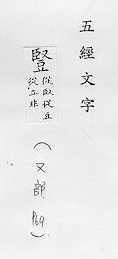 五經文字
豎
從臤從豆
從立非
(又部
)